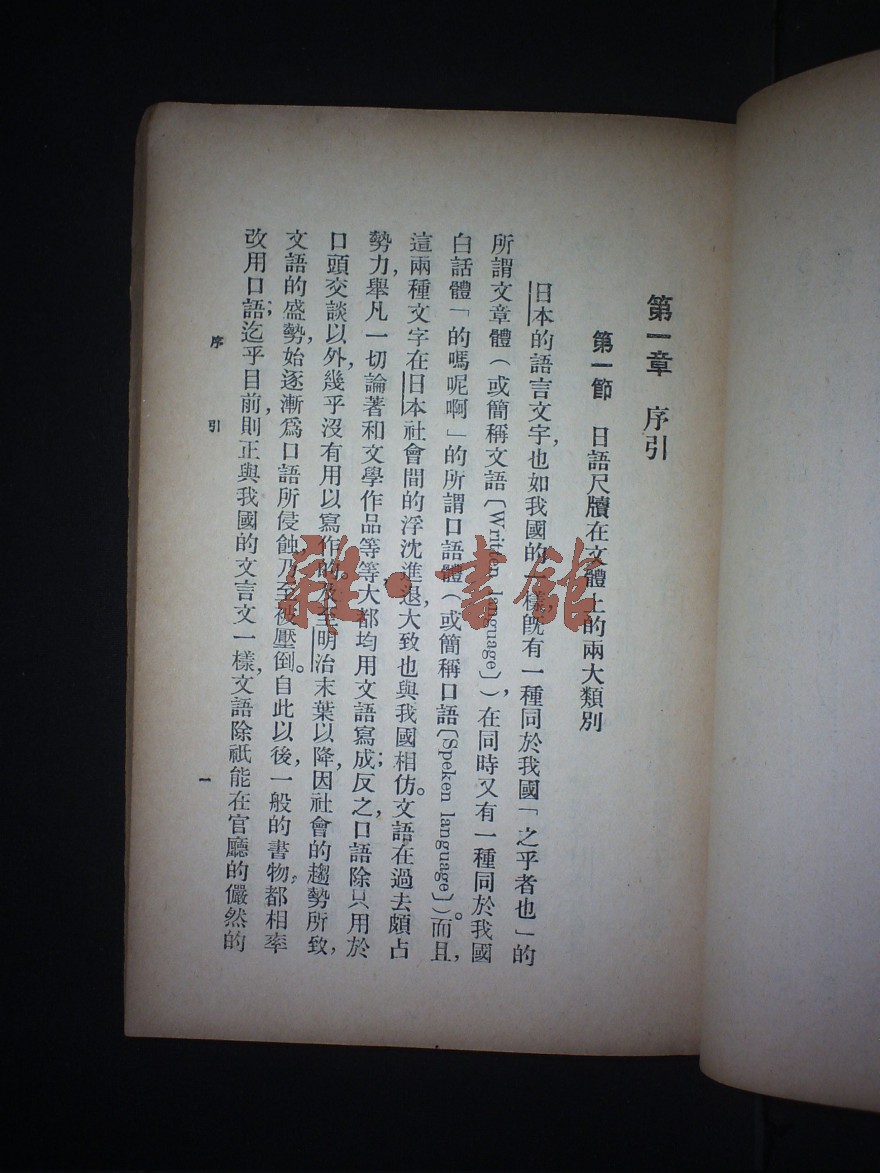 第一章 序引
第一節 日語尺牘在文體上的兩大類別
日本的語言文字,也如我國的一樣,既有一種同於我國「之乎者也」的
所謂文章體(或簡稱文語〔Written language〕),在同時又有一種同於我國
白話體「的嗎呢啊」的所謂口語體(或簡稱口語〔Speken language〕)。而且,
這兩種文字在日本社會間的浮沈進退,大致也與我國相仿。文語在過去頗占
勢力,舉凡一切論著和文學作品等等,大都均用文語寫成;反之,口語除只用於
口頭交談以外,幾乎沒有用以寫作的。及至明治末葉以降,因社會的趨勢所致,
文語的盛勢,始逐漸爲口語所侵蝕,乃至被壓倒。自此以後,一般的書物,都相率
改用口語;迄乎目前,則正與我國的文言文一樣,文語除祇能在官廳的儼然的
序 引
一
雜·書館